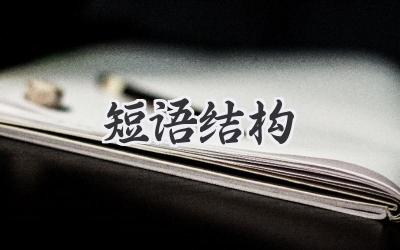 短语结构